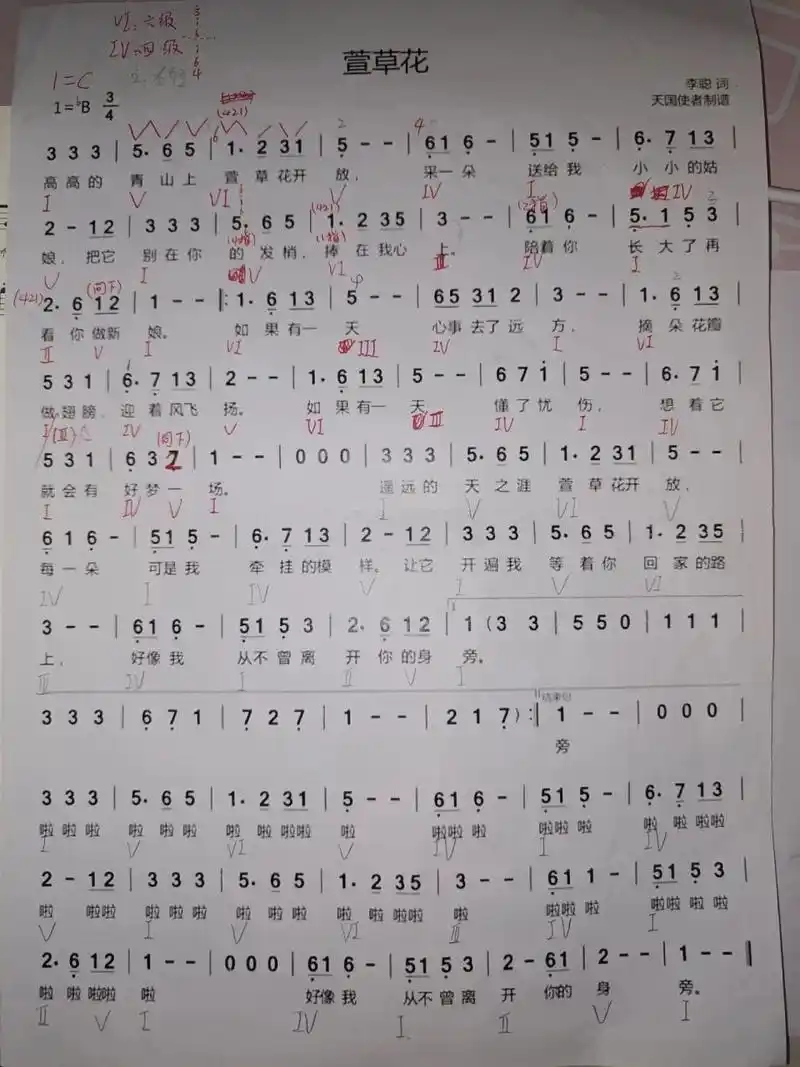 VI:六级
IV:四级
1=C
萱草花
李聪 词
天国使者制谱
1=♭B 3/4
(421)
3 3 3 | 5. 6 5 | 1. 2 31 | 5 - - | 61 6 - | 51 5 - | 6. 7 13 |
高高的 青山上 萱草花开 放, 采一朵 送给我 小小的姑
I V VI V IV I IV
2 - 12 | 3 3 3 | 5. 6 5 | 1. 2 35 | 3 - - | 61 6 - | 5. 1 5 3 |
娘, 把它 别在你 的发梢, 捧在我心 上。 陪着你 长大了再
V I V VI III IV I
(421)
2. 6 12 | 1 - - |: 1. 6 13 | 5 - - | 65 31 2 | 3 - - | 1. 6 13 |
看你做新 娘。 如果有一 天 心事去了远 方, 摘朵花瓣
II V I VI III IV I VI
5 3 1 | 6. 7 13 | 2 - - | 1. 6 13 | 5 - - | 6 7 1 | 5 - - | 6. 7 1 |
做翅膀, 迎着风飞 扬。 如果有一 天 懂了忧 伤, 想着它
I (III) IV V VI III IV I IV
5 3 1 | 6 3 2 | 1 - - | 0 0 0 | 3 3 3 | 5. 6 5 | 1. 2 31 | 5 - - |
就会有 好梦一 场。 遥远的 天之涯 萱草花开 放,
I IV V I I V VI V
6 1 6 - | 51 5 - | 6. 7 13 | 2 - 12 | 3 3 3 | 5. 6 5 | 1. 2 35 |
每一朵 可是我 牵挂的模 样。让它 开遍我 等着你 回家的路
IV I IV V I V VI
3 - - | 61 6 - | 51 5 3 | 2. 6 12 | 1 (3 3 | 5 5 0 | 1 1 1 |
上, 好像我 从不曾离 开你的身 旁。
III IV I II V I
3 3 3 | 6 7 1 | 7 2 7 | 1 - - | 2 1 7 ) :| 1 - - | 0 0 0 |
结束句
旁
3 3 3 | 5. 6 5 | 1. 2 31 | 5 - - | 61 6 - | 51 5 - | 6. 7 13 |
啦啦啦 啦啦啦 啦啦啦啦 啦 啦啦啦 啦啦啦 啦啦啦啦
I V VI V IV I IV
2 - 12 | 3 3 3 | 5. 6 5 | 1. 2 35 | 3 - - | 61 1 - | 51 5 3 |
啦 啦啦 啦啦啦 啦啦啦 啦啦啦啦 啦 啦啦啦 啦啦啦啦
V I V VI III IV I
2. 6 12 | 1 - - | 0 0 0 | 61 6 - | 51 5 3 | 2 - 61 | 2 - - | 1 - - ||
啦啦啦啦 啦 好像我 从不曾离 开 你的 身 旁。
II V I IV I II V I